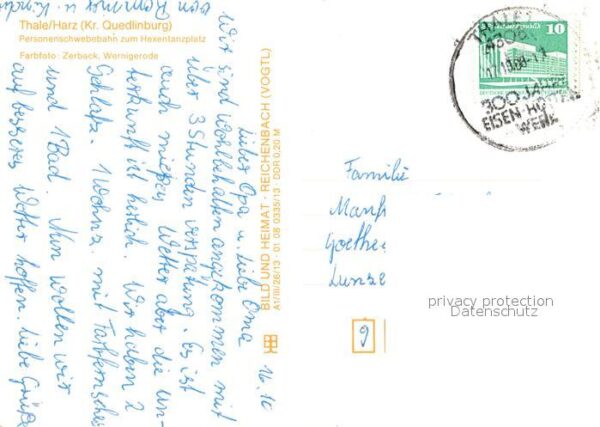 Thale/Harz (Kr. Quedlinburg)
Personenschwebebahn zum Hexentanzplatz
Farbfoto: Zerback, Wernigerode
16.10
Lieber Opa u. liebe Oma
Wir sind wohlbehalten angekommen mit
über 3 Stunden verspätung. Es ist
auch mieses Wetter aber die Un-
terkunft ist herlich. Wir haben 2
Schlafz. 1 Wohnz. mit Farbfernseher
und 1 Bad. Nun wollen wir
auf besseres Wetter hoffen. Liebe Grüße
von
u.
BILD UND HEIMAT · REICHENBACH (VOGTL)
A1/III/26/13 · 01 08 0335/13 · DDR 0,20 M
THALE
4308
300 JAHRE
EISEN HÜTTEN
WERK
10
Familie
Manf
Goethe
Lunze
privacy protection
Datenschutz
9